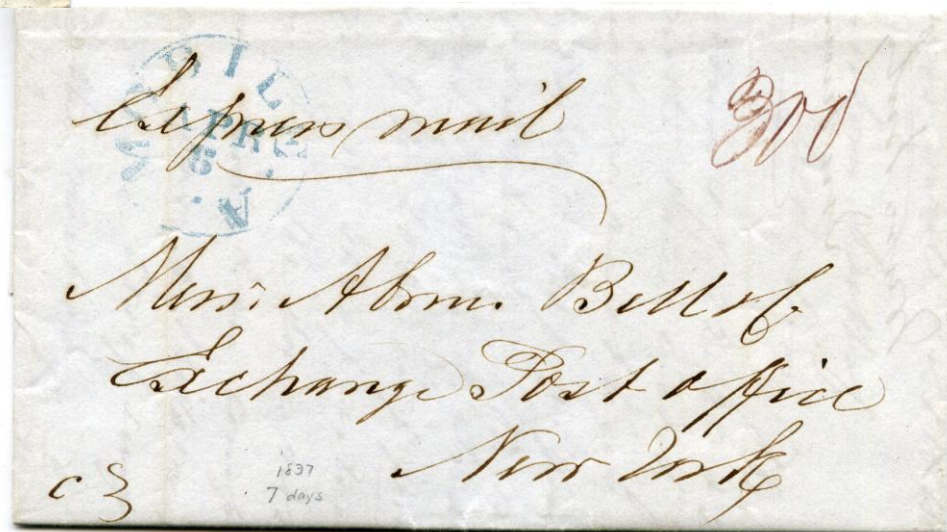 MOBILE APR 5
Express mail
300
Messr. Abrm. Bell & Co.
Exchange Post office
New York
1837
7 days